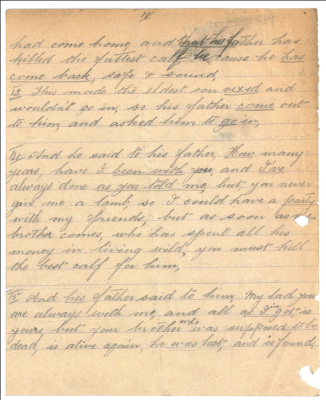 had come home, and that his father has
killed the fattest calf because he has
come back, safe & sound,
13, This made the eldest son vexed and
wouldn't go in, so his father come out
to him, and asked him to go in,
14 And he said to his father, How many
years, have I been with you, and I've
always done as you told me, but you never
give me a lamb, so I could have a party
with my friends; but as soon as
brother comes, who has spent all his
money in living wild, you must kill
the best calf for him,
15 And his father said to him, My lad, you
are always with me, and all as I've got is
yours, but your brother who was supposed to be
dead, is alive again, he was lost, and is found,